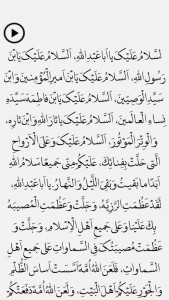 لسَّلامُ عَلَیْکَ یا اَبا عَبْدِاللهِ، اَلسَّلامُ عَلَیْکَ یَابْنَ
رَسُولِ اللهِ، اَلسَّلامُ عَلَیْکَ یَابْنَ اَمیرِ الْمُؤْمِنینَ وَابْنَ
سَیِّدِ الْوَصِیّینَ، اَلسَّلامُ عَلَیْکَ یَابْنَ فاطِمَهَ سَیِّدَهِ
نِساءِ الْعالَمینَ، اَلسَّلامُ عَلَیْکَ یا ثارَ اللهِ وَابْنَ ثارِهِ،
وَالْوِتْرَ الْمَوْتُورَ، اَلسَّلامُ عَلَیْکَ وَعَلَى الْاَرْواحِ
الَّتی حَلَّتْ بِفِنائِکَ، عَلَیْکُمْ مِنّی جَمیعاً سَلامُ اللهِ
اَبَداً ما بَقیتُ وَبَقِیَ اللَّیْلُ وَالنَّهارُ، یا اَبا عَبْدِاللهِ،
لَقَدْ عَظُمَتِ الرَّزِیَّهُ، وَجَلَّتْ وَعَظُمَتِ الْمُصیبَهُ
بِکَ عَلَیْنا وَعَلى جَمیعِ اَهْلِ الْاِسْلامِ، وَجَلَّتْ وَ
عَظُمَتْ مُصیبَتُکَ فِی السَّماواتِ عَلى جَمیعِ اَهْلِ
السَّماواتِ، فَلَعَنَ اللهُ اُمَّهً اَسَّسَتْ اَساسَ الظُّلْمِ
وَالْجَوْرِ عَلَیْکُمْ اَهْلَ الْبَیْتِ، وَلَعَنَ اللهُ اُمَّهً دَفَعَتْکُمْ